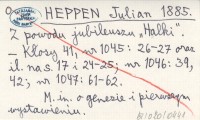 O HEPPEN Julian 1885.
Z powodu jubileuszu "Halki"
— Kłosy 41, nr 1045: 26-27 oraz
il. na s. 17 i 24-25; nr 1046: 39,
42; nr 1047: 61-62.
M. in. o genezie i pierwszym
wystawieniu.